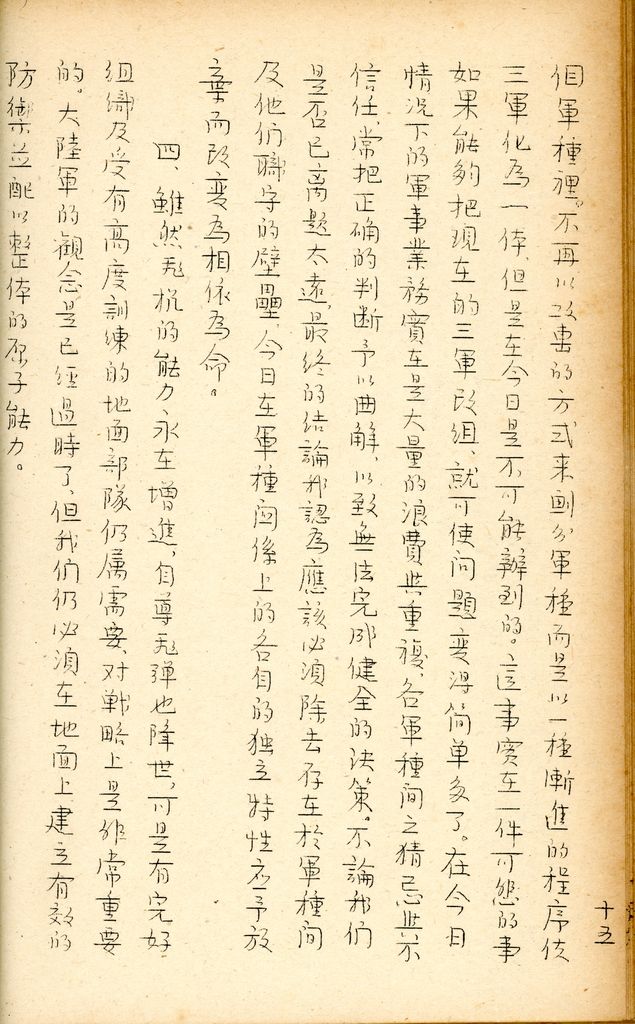 個軍種裡。不再以改善的方式来劃分軍種而是以一種漸進的程序使
三軍化為一体,但是在今日是不可能辦到的。這事实在一件可悲的事
如果能夠把現在的三軍改組、就可使问題变得简单多了。在今日
情况下的軍事業務實在是大量的浪費與重複、各軍種间之猜忌與不
信任,常把正确的判断予以曲解、以致無法完成健全的决策。不論我们
是否已离題太遠,最終的結論我認為應該必須除去存在於軍種间
及他们職守的壁壘、今日在軍種関係上的各自的独立特性应予放
棄而改变為相依為命。
四、雖然飛机的能力永在增進,自导飛弹也降世,可是有完好
組織及受有高度訓練的地面部隊仍属需要、对戦略上是非常重要
的。大陸軍的觀念是已經過時了,但我们仍必須在地面上建立有效的
防禦並配以整体的原子能力。
十五